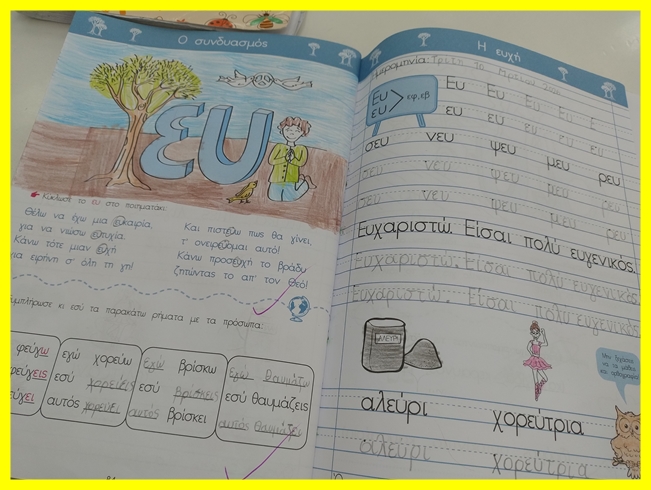 Ο συνδυασμός
ευ
Κυκλωσε το ευ στο ποιηματάκι:
Θέλω να έχω μια ευκαιρία,
για να νιώσω ευτυχία.
Κάνω τότε μιαν ευχή
για ειρήνη σ' όλη τη γη!
Και πιστεύω πως θα γίνει,
τ' ονειρεύομαι αυτό!
Κάνω προσευχή το βράδυ
ζητώντας το απ' τον Θεό!
Συμπλήρωσε κι εσύ τα παρακάτω ρήματα με τα πρόσωπα:
φεύγω
φεύγεις
φεύγει
εγώ χορεύω
εσύ χορεύεις
αυτός χορεύει
εγώ βρίσκω
εσύ βρίσκεις
αυτός βρίσκει
εγώ θαυμάζω
εσύ θαυμάζεις
αυτός θαυμάζει
Η ευχή
Ημερομηνία: Τρίτη
Ευ
ευ
εφ, εβ
Ευ Ευ Ευ Ευ Ε
ευ ευ ευ ευ ευ
σευ νευ ψευ μευ ρευ
σευ νευ ψευ μευ ρευ
σευ νευ ψευ μευ ρευ
Ευχαριστώ. Είσαι πολύ ευγενικός.
Ευχαριστώ. Είσαι πολύ ευγενικός
Ευχαριστώ. Είσαι πολύ ευγενικός
ΑΛΕΥΡΙ
αλεύρι χορεύτρια
αλεύρι χορεύτρια